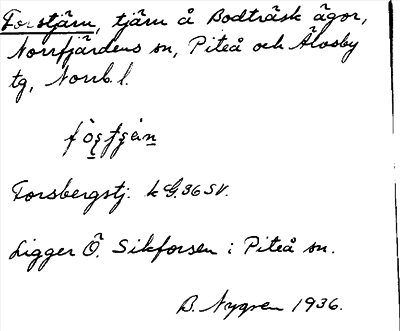 Forstjärn, tjärn å Bodträsk ägor,
Norrfjärdens sn, Piteå och Älvsby
tg, Norrb. l.
Forsbergstj. k G.36 SV.
Ligger Ö. Sikforsen i Piteå sn.
B. Nygren 1936.